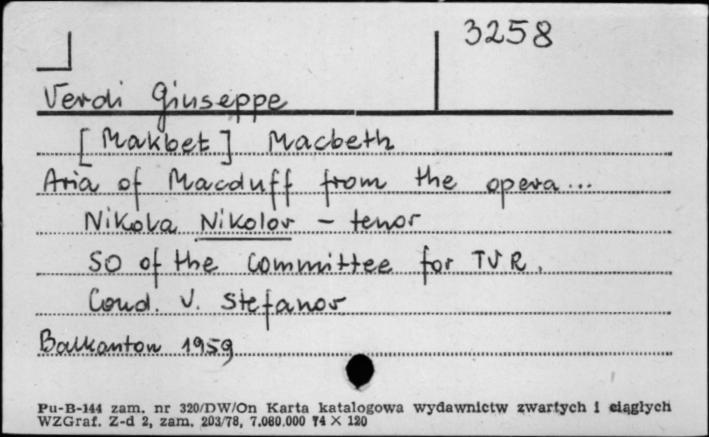 3258
Verdi Giuseppe
[Makbet] Macbeth
Aria of Macduff from the opera...
Nikola Nikolov - tenor
SO of the Committee for TVR.
Cond. V. Stefanov
Balkanton 1959
Pu-B-144 zam. nr 320/DW/On Karta katalogowa wydawnictw zwartych i ciągłych
WZGraf. Z-d 2, zam. 203/78, 7.080.000 74 × 120